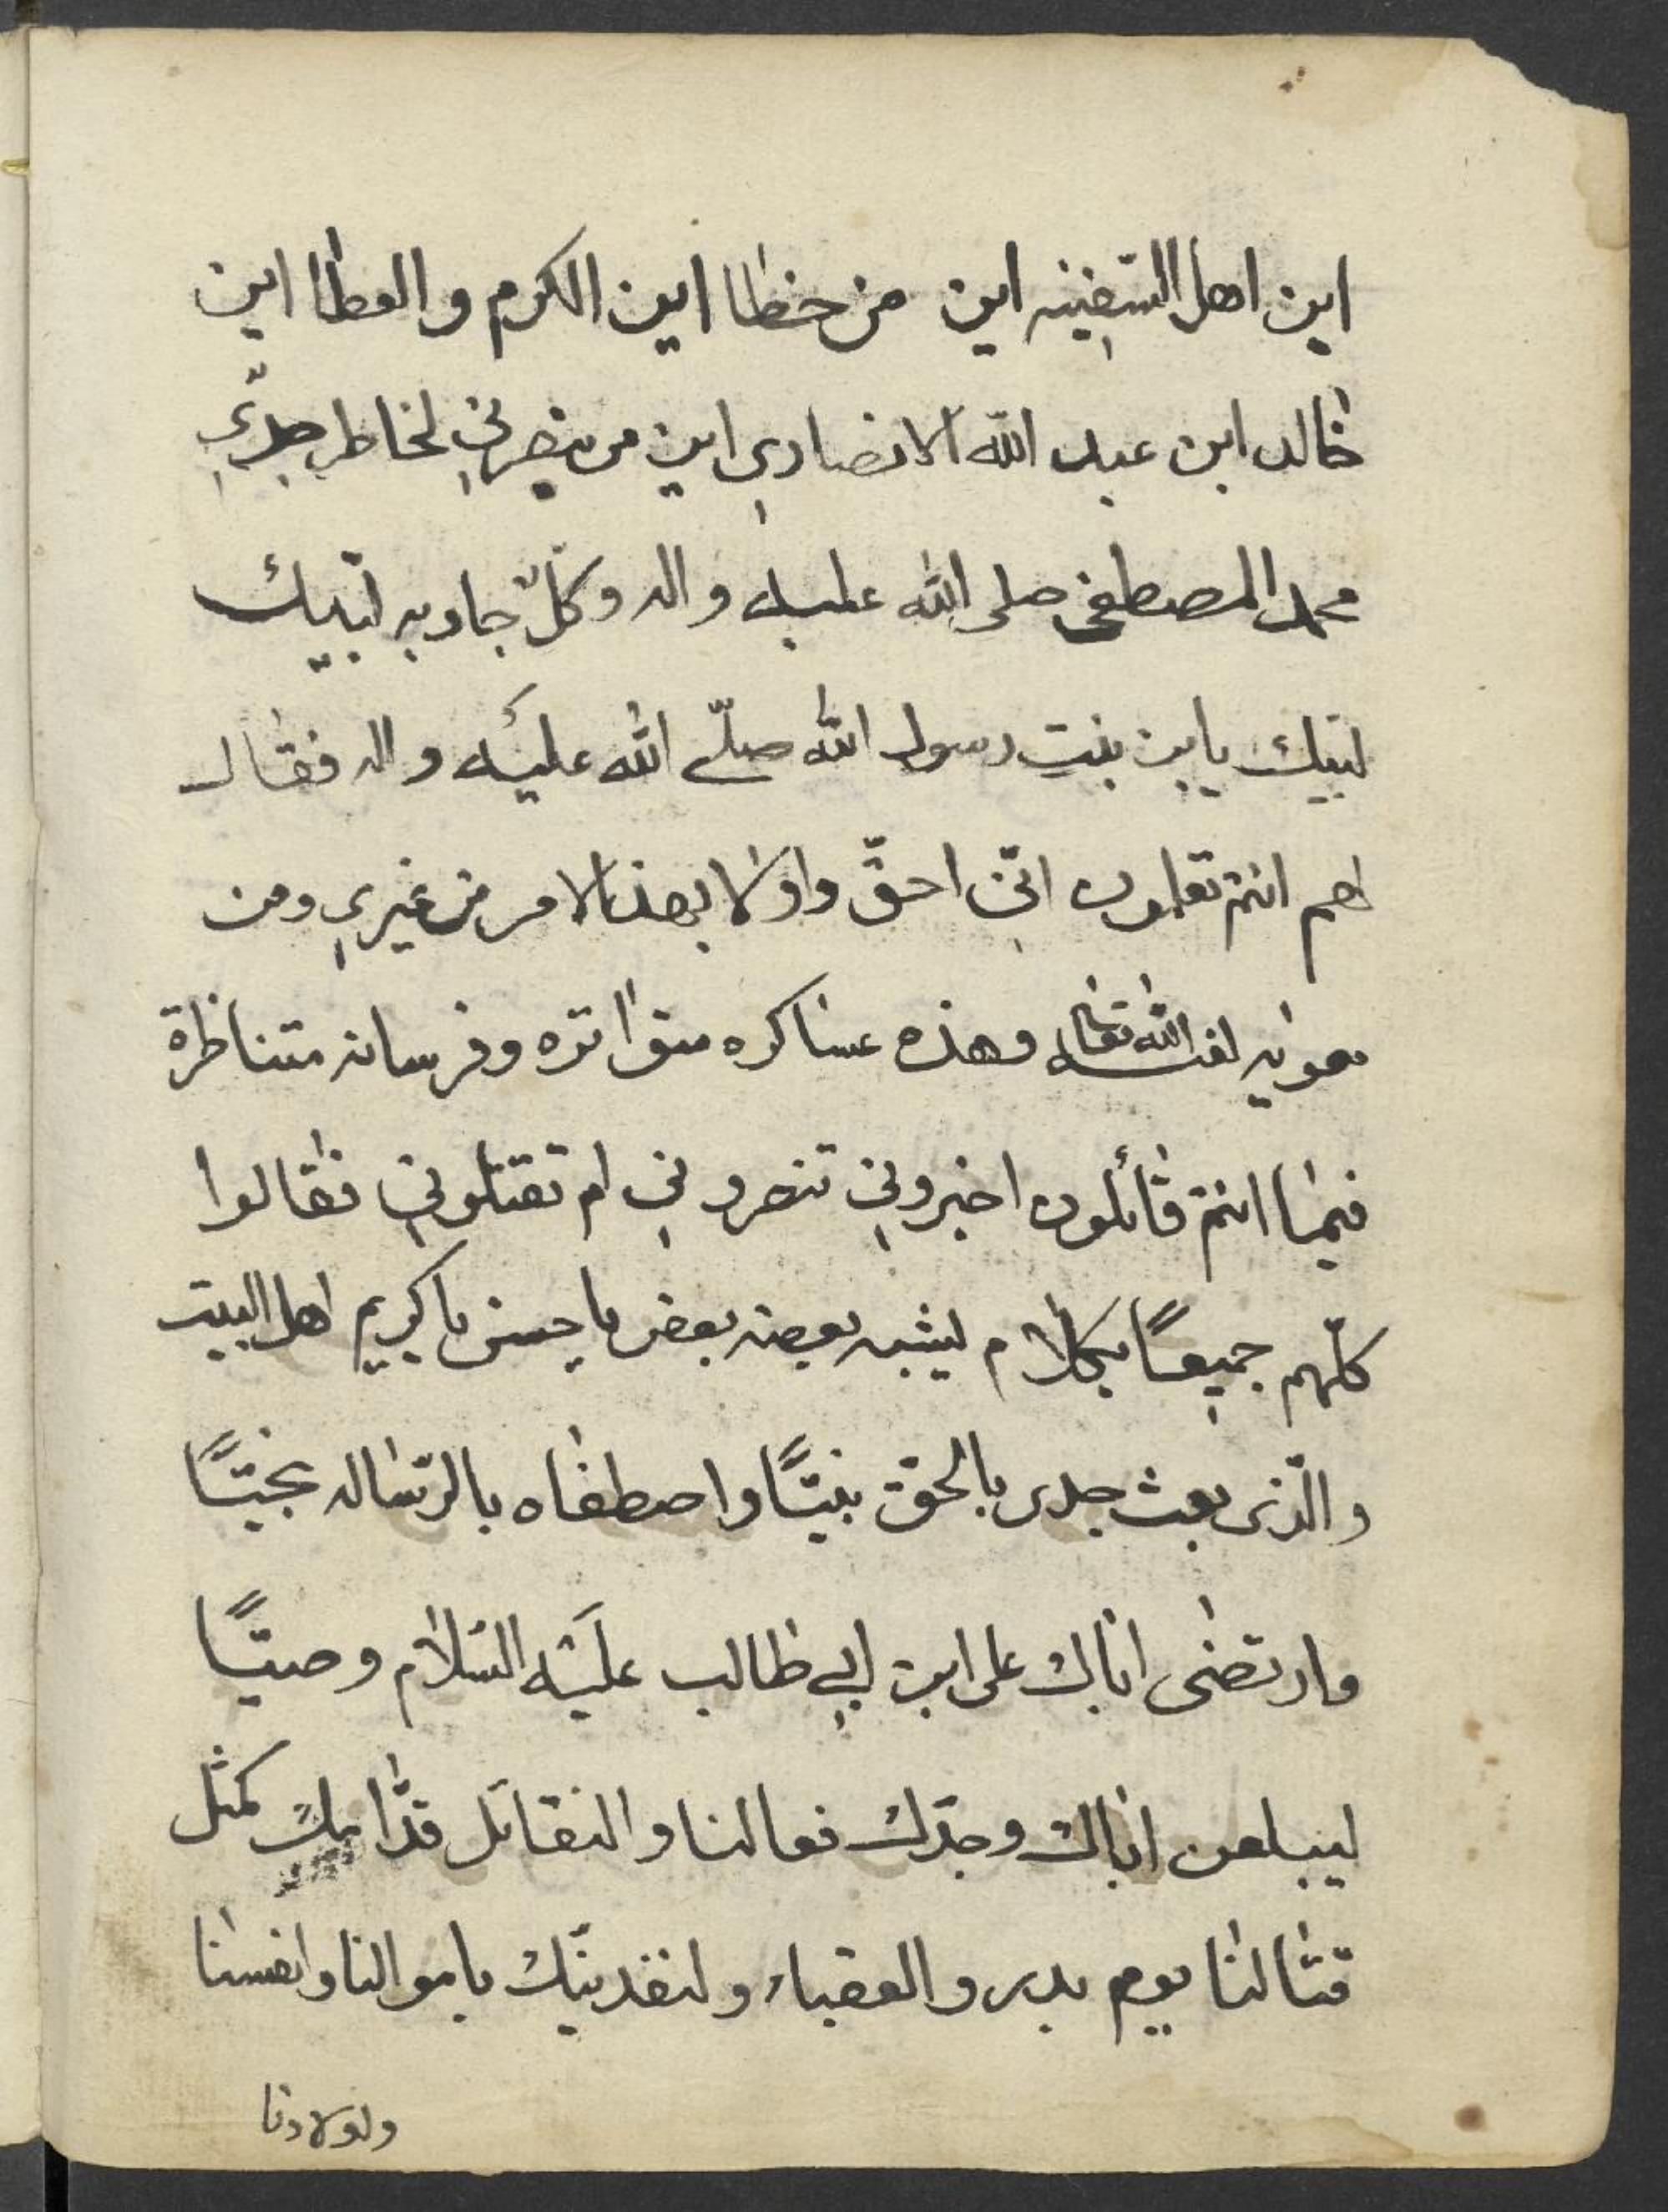 اين اهل السّفينه اين من خطا اين الكرم والعطا اين
خالد ابن عبد اللّه الانصاري اين من ينصرني لخاطر جدّي
محمد المصطفى صلى اللّه عليه واله وكلّ جاوبه لبّيك
لبّيك يابن بنت رسول اللّه صلّے اللّه عليه واله فقال
لهم انتم تعلمون انّي احقّ واولا بهذالامر من غيري ومن
معويه لعنه اللّه تعالى وهذه عساكره متواتره وفرسانه متناظرة
فيما انتم قائلون اخبروني تنصروني ام تقتلوني فقالوا
كلّهم جميعًا بكلام يشبه بعضه بعض يا حسن يا كريم اهل البيت
والّذى بعث جدى بالحقّ نبيًّا واصطفاه بالرّساله نجيًّا
وارتضى اباك على ابن ابي طالب عليه السّلام وصيًّا
ليبلعن اباك وجدّك فعالنا والنقاتل قدّامك كمثل
قتالنا يوم بدر والعقباء ولنفدينّك باموالنا وانفسنا
ولولادنا